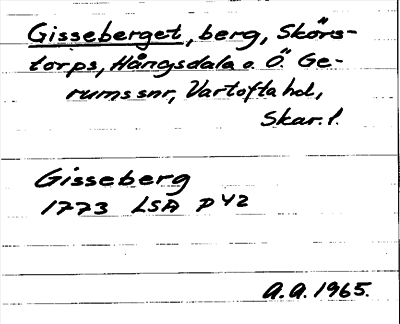 Gisseberget, berg, Skörs-
torps, Hångsdala o. Ö. Ge-
rums snr, Vartofta hd,
Skar. l.
Gisseberg
1773 LSA P 42
A.A. 1965.